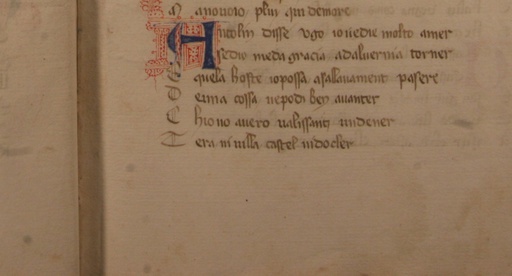 M anouoio plui qui demore
Antolin disse ugo io uedie molto amer
Sedio me da gracia ad aluernia torner
E quela hoste io possa a saluament pasere
D euna cossa ue podi ben auanter
C hio no auero ualissant un dener
T era ni uilla castel ni docler